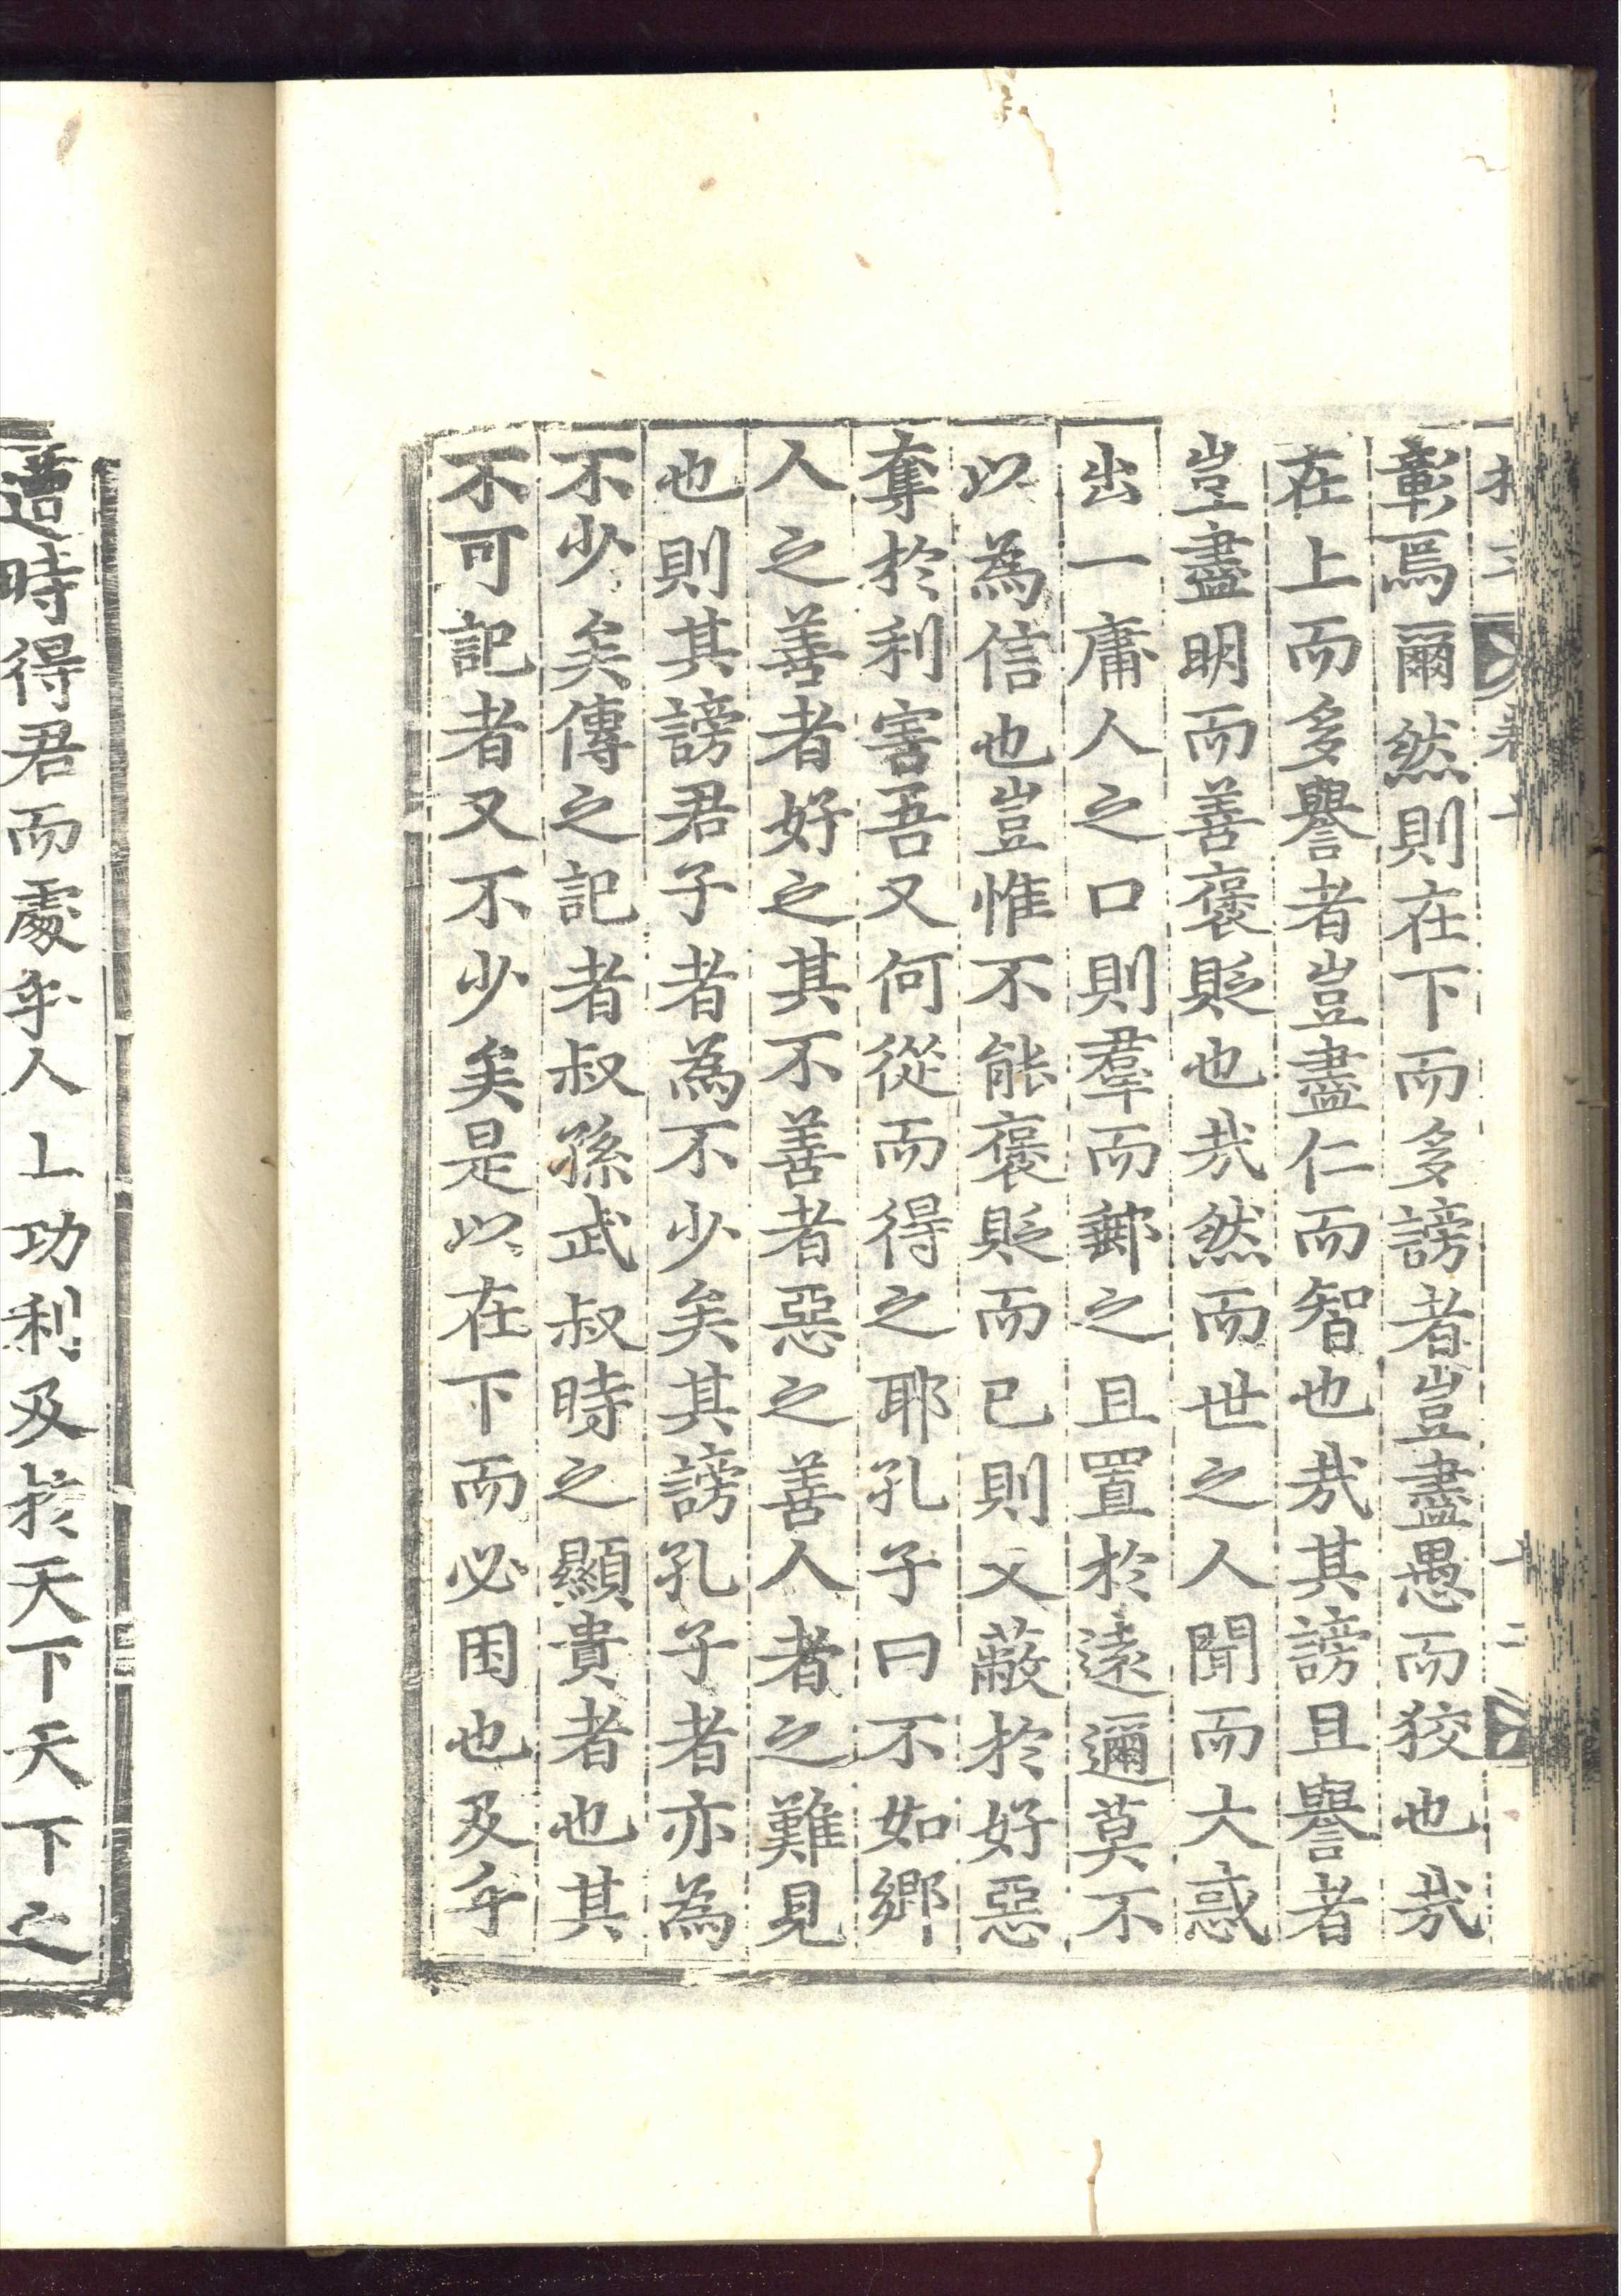 彰焉爾然則在下而多謗者豈盡愚而狡也哉
在上而多譽者豈盡仁而智也哉其謗且譽者
豈盡明而善褒貶也哉然而世之人聞而大惑
出一庸人之口則羣而郵之且置於遠邇莫不
以為信也豈惟不能褒貶而已則又蔽於好惡
奪於利害吾又何從而得之耶孔子曰不如鄉
人之善者好之其不善者惡之善人者之難見
也則其謗君子者為不少矣其謗孔子者亦為
不少矣傳之記者叔孫武叔時之顯貴者也其
不可記者又不少矣是以在下而必困也及乎
遭時得君而處乎人上功利及於天下天下之